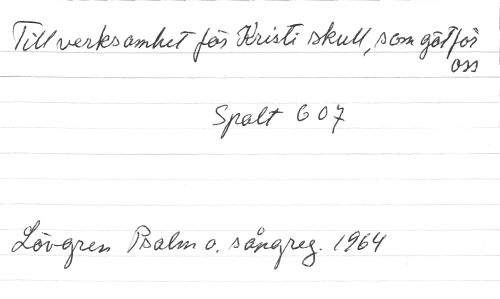 Till verksamhet för Kristi skull, som göt för
oss
Spalt 607
Lövgren Psalm o. sångreg. 1964